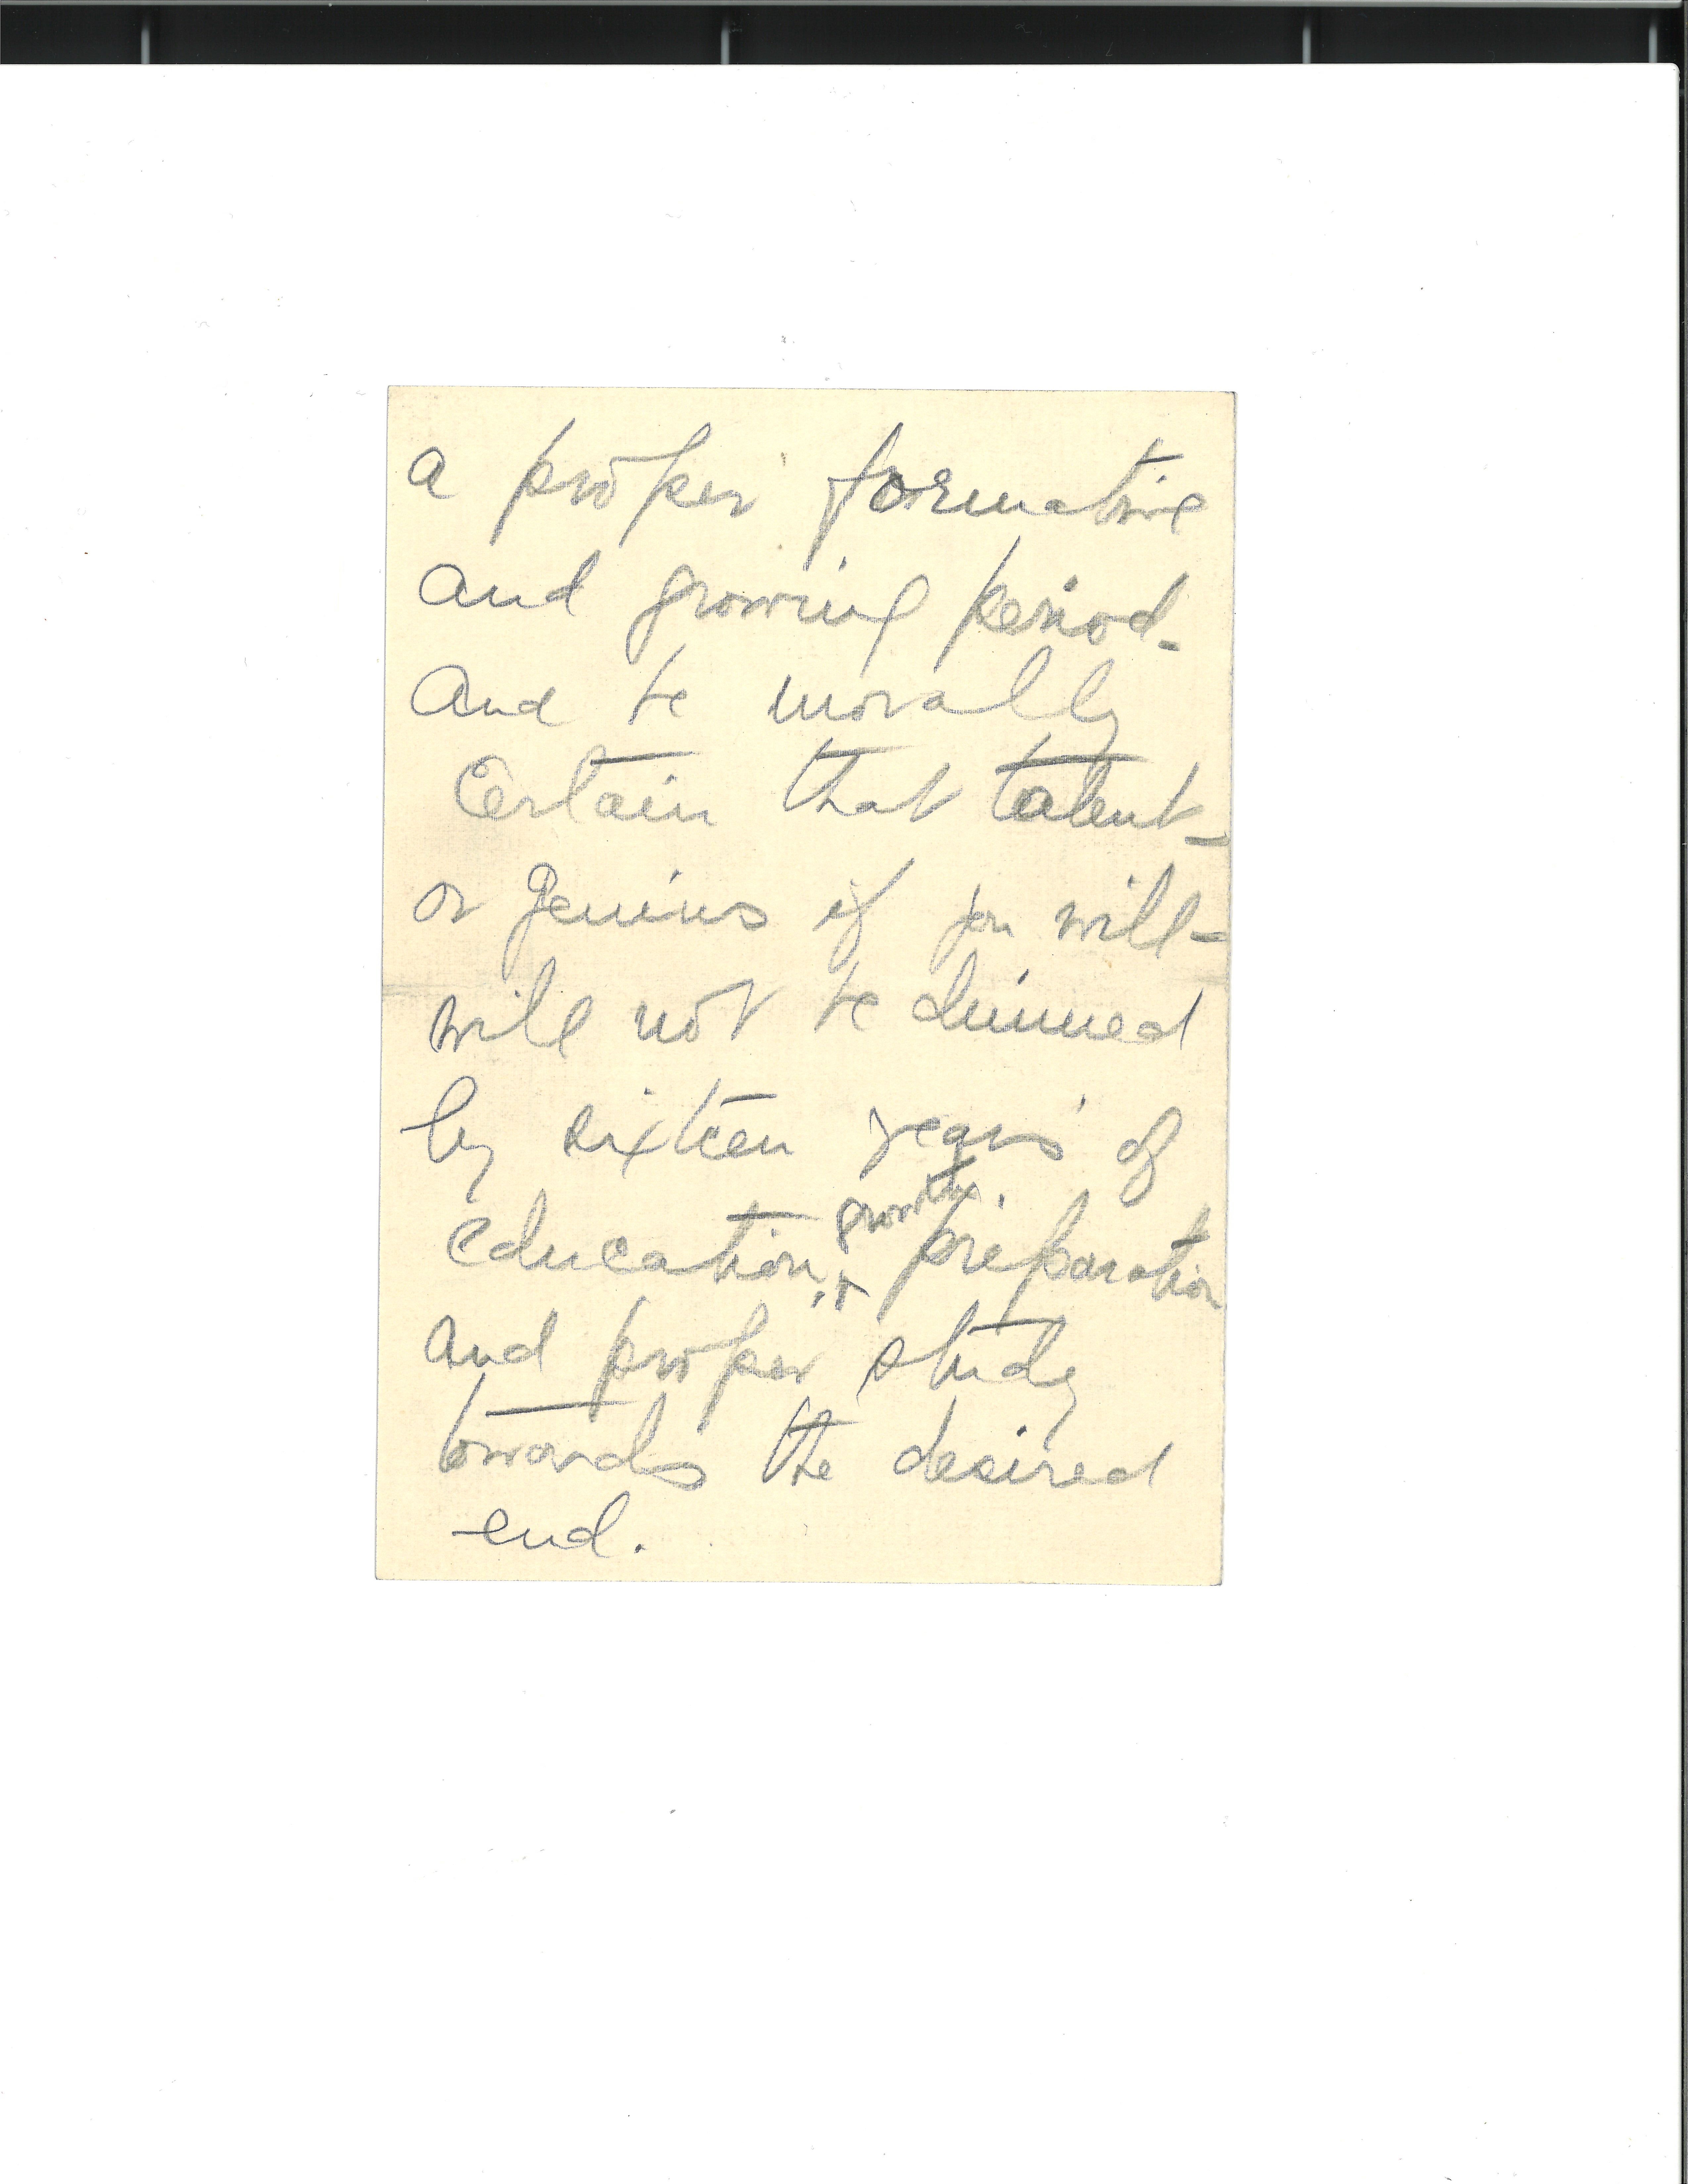 a proper formative
and growing period -
And be morally
certain that talent -
or genius if you will -
will not be dimmed
by sixteen years of
growth.
education, + preparation
and proper study
towards the desired
end.